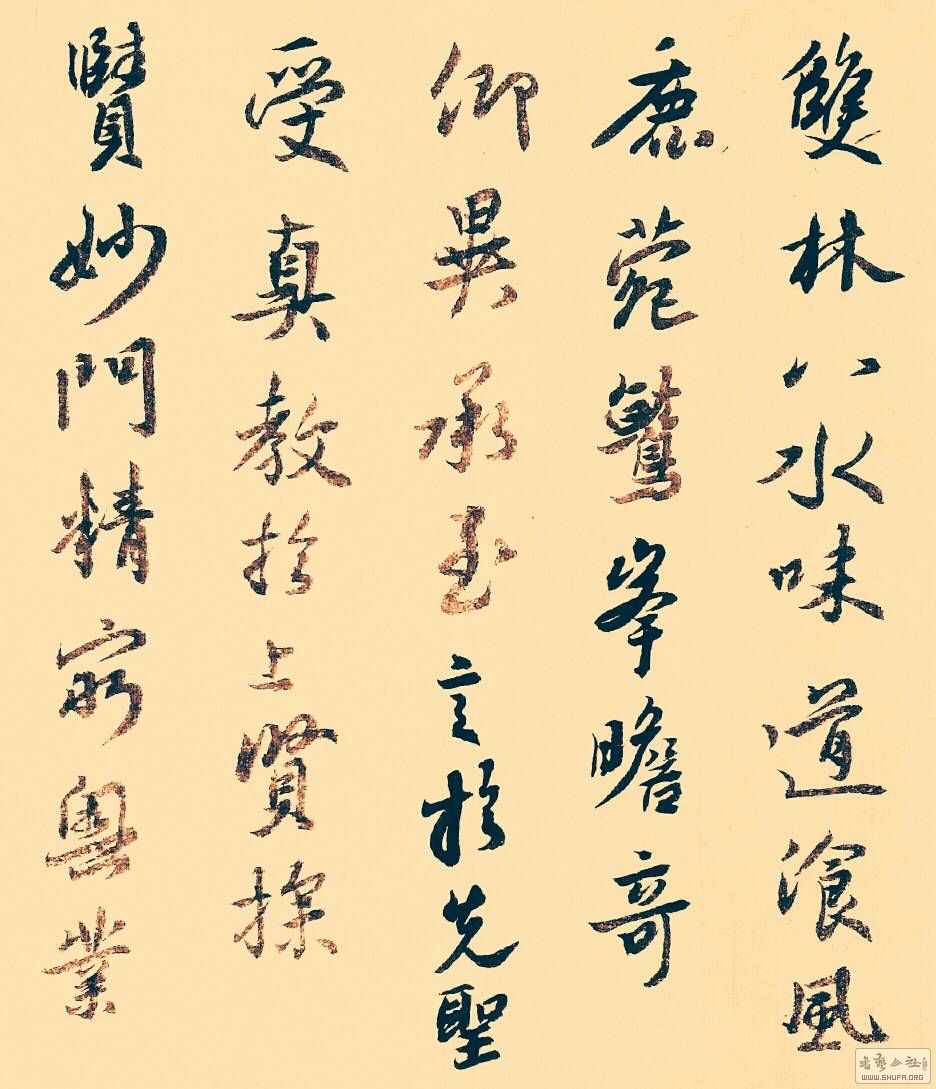 雙林八水味道飡風
鹿菀鷲峯瞻奇
仰異承至言於先聖
受真教於上賢探
賾妙門精窮奥業
WWW.SHUFA.ORG